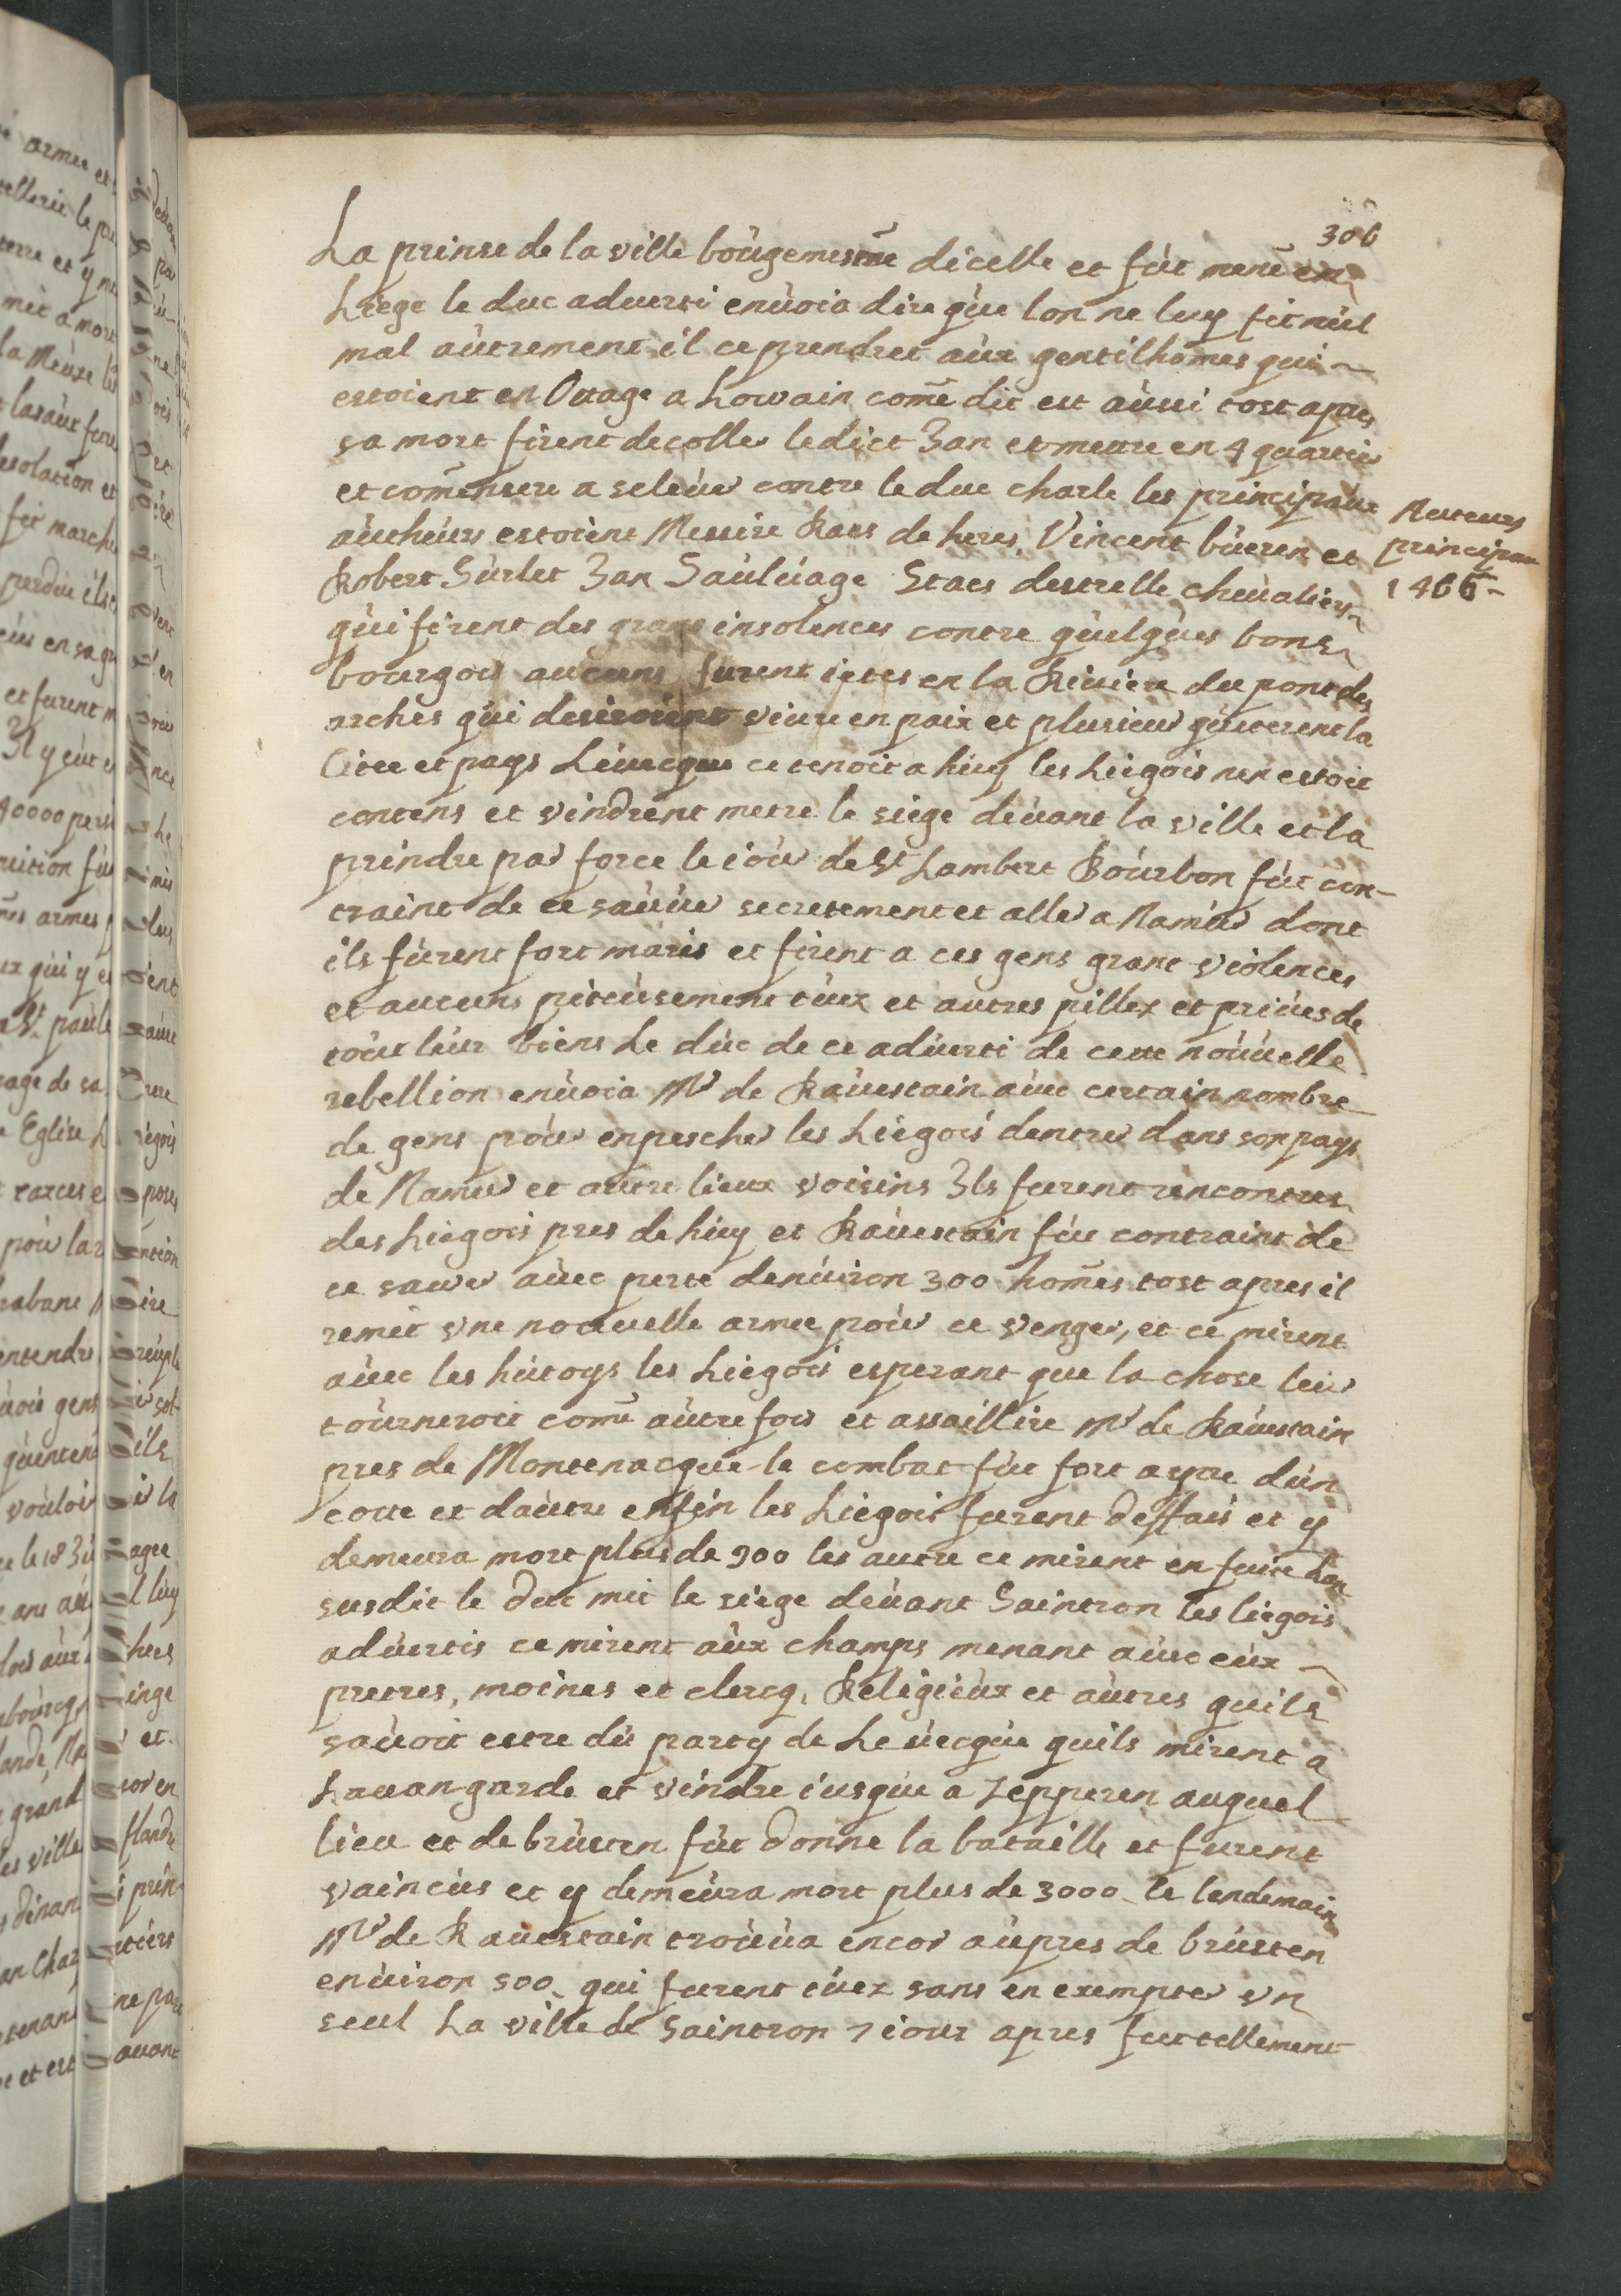 306
La prinse de la ville bougemestre dicelle et fut mene en
Liege le duc aduerti enuoia dire que lon ne luy fit nul
mal autrement il ce prendret aux gentilhomes qui
estoient en Ottage a Lowain come dit est aussi tost apres
sa mort firent decoller ledict Jan et mettre en 4 quartier
et comensere a seleuer contre le duc charle les principaux
autheurs estoient Messire Raes de heres, Vincent bueren et
Robert Surlet Jan Sauluage Staes destrelle cheualiers
qui firent des grans insolences contre quelques bons
bourgois aucuns furent ietes en la Riuiere du pont des
arches qui desiroient viure en paix et plusieur quiterent la
Citee et pays Leuecque ce tenoit a huy les Liegois nen estoit
contens et vindrent metre le siege deuant la ville et la
prindre par force le iour de St Lambert Bourbon fut con-
traint de ce sauuer secretement et aller a Namur dont
ils furent fort maris et firent a ces gens grant violences
et aucuns piteusement tuez et autres pillez et priues de
tout leur biens Le duc de ce aduerti de cette nouuelle
rebellion enuoia Mr de Rauestain auec certain nombre
de gens pour enpescher les Liegois dentrer dans son pays
de Namur et autre lieux voisins Ils furent rencontres
des Liegois pres de huy et Rauestain fut contraint de
ce sauver auec perte denuiron 300 homes tost apres il
remit vne nouuelle armee pour ce venger, et ce mirent
auec les hutoys les Liegois esperant que la chose leur
tourneroit come autrefois et assaillire Mr de Rauestain
pres de Montenacque le combat fut fort aspre dun
cotte et dautre enfin les Liegois furent deffais et y
demeura mort plus de 900 les autre ce mirent en fuite Lan
susdit le duc mit le siege deuant Saintron les liegois
aduertis ce mirent aux champs menant auec eux
pretres, moines et clercq, Religieux et autres quils
sauoit estre du party de Leuecque quils mirent a
Lauangarde et vindre iusque a Zepperen auquel
lieu et de brusten fut donne la bataille et furent
vaincus et y demeura mort plus de 3000 le lendemain
Mr de Rauestain trouua encor aupres de brusten
enuiron 500 qui furent tuez sans en exempter vn
seul La ville de Saintron 7 iour apres fut tellement
Auteurs
principau
1466